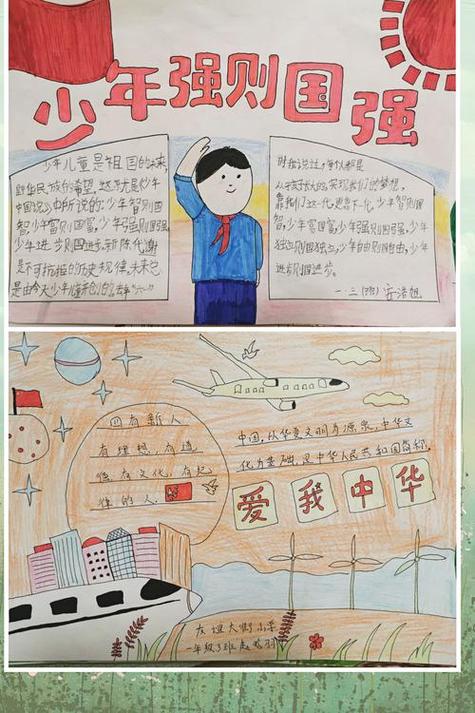 少年强则国强
少年儿童是祖国的未来,
中华民族的希望,这就是《少年
中国说》中所说的:少年智则国
智,少年富国富,少年强则国强
少年进步则国进步,新陈代谢
是不可抗拒的历史规律,未来也
是由今天少年懂来创的
从孩子长大的,实现我们的梦想,
靠我们这一代,更靠下一代,少年智则国
智,少年富国富,少年强则国强,少年
独立则国独立,少年自由则国自由,少年
进步则国进步。
一.三(班)
四有新人
有理想,有道
德有文化,有纪
律的人.
中国,以华夏文明为源泉,中华文
化为基础,是中华人民共和国简称.
爱我中华
友谊大街小学
一年级3班